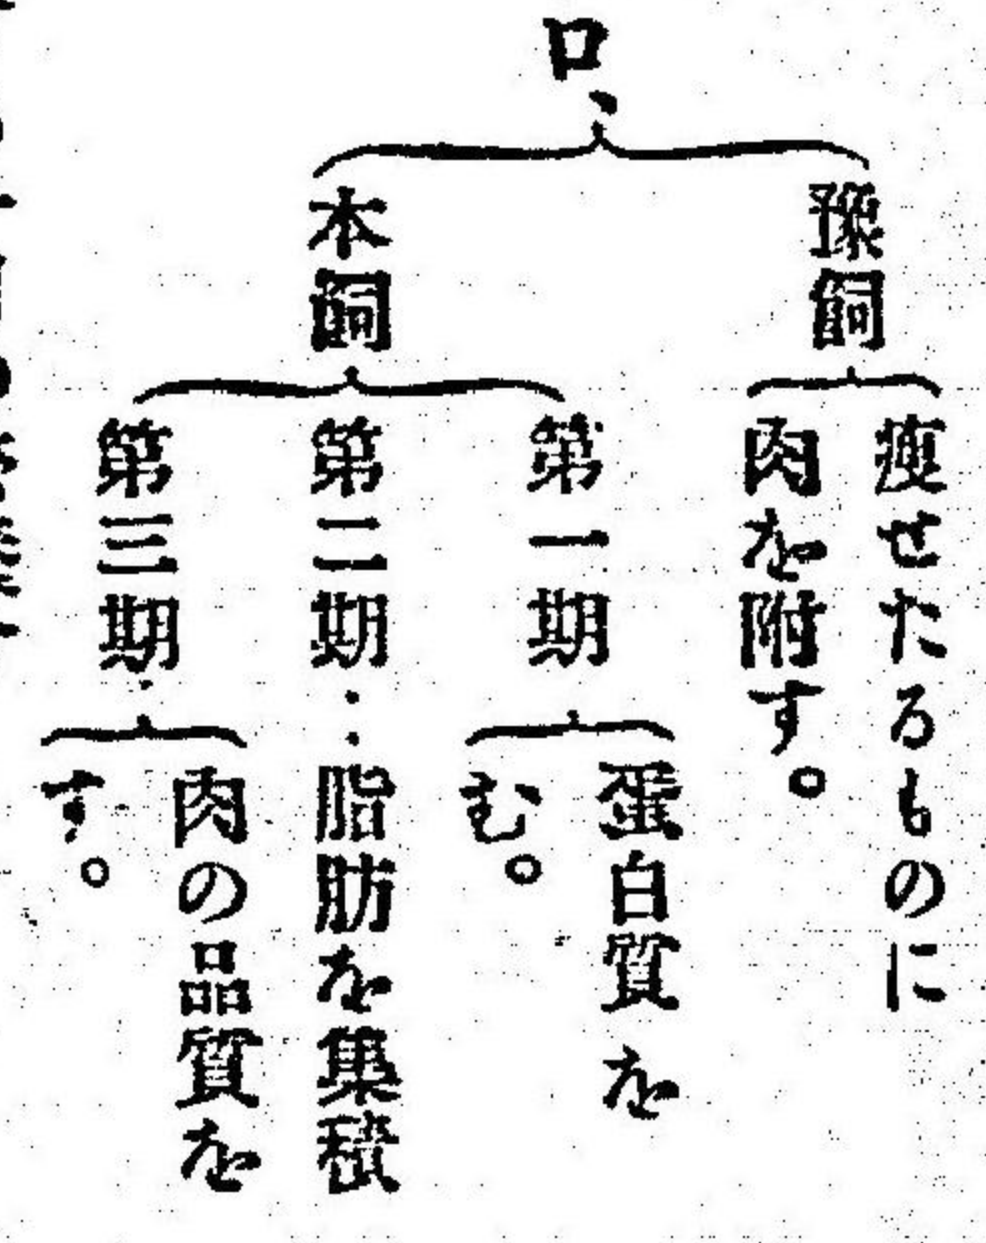 ロ、
豫飼
瘦せたるものに
肉を附す。
本飼
第一期
蛋白質を
む。
第二期:脂肪を集積
第三期
肉の品質を
す。